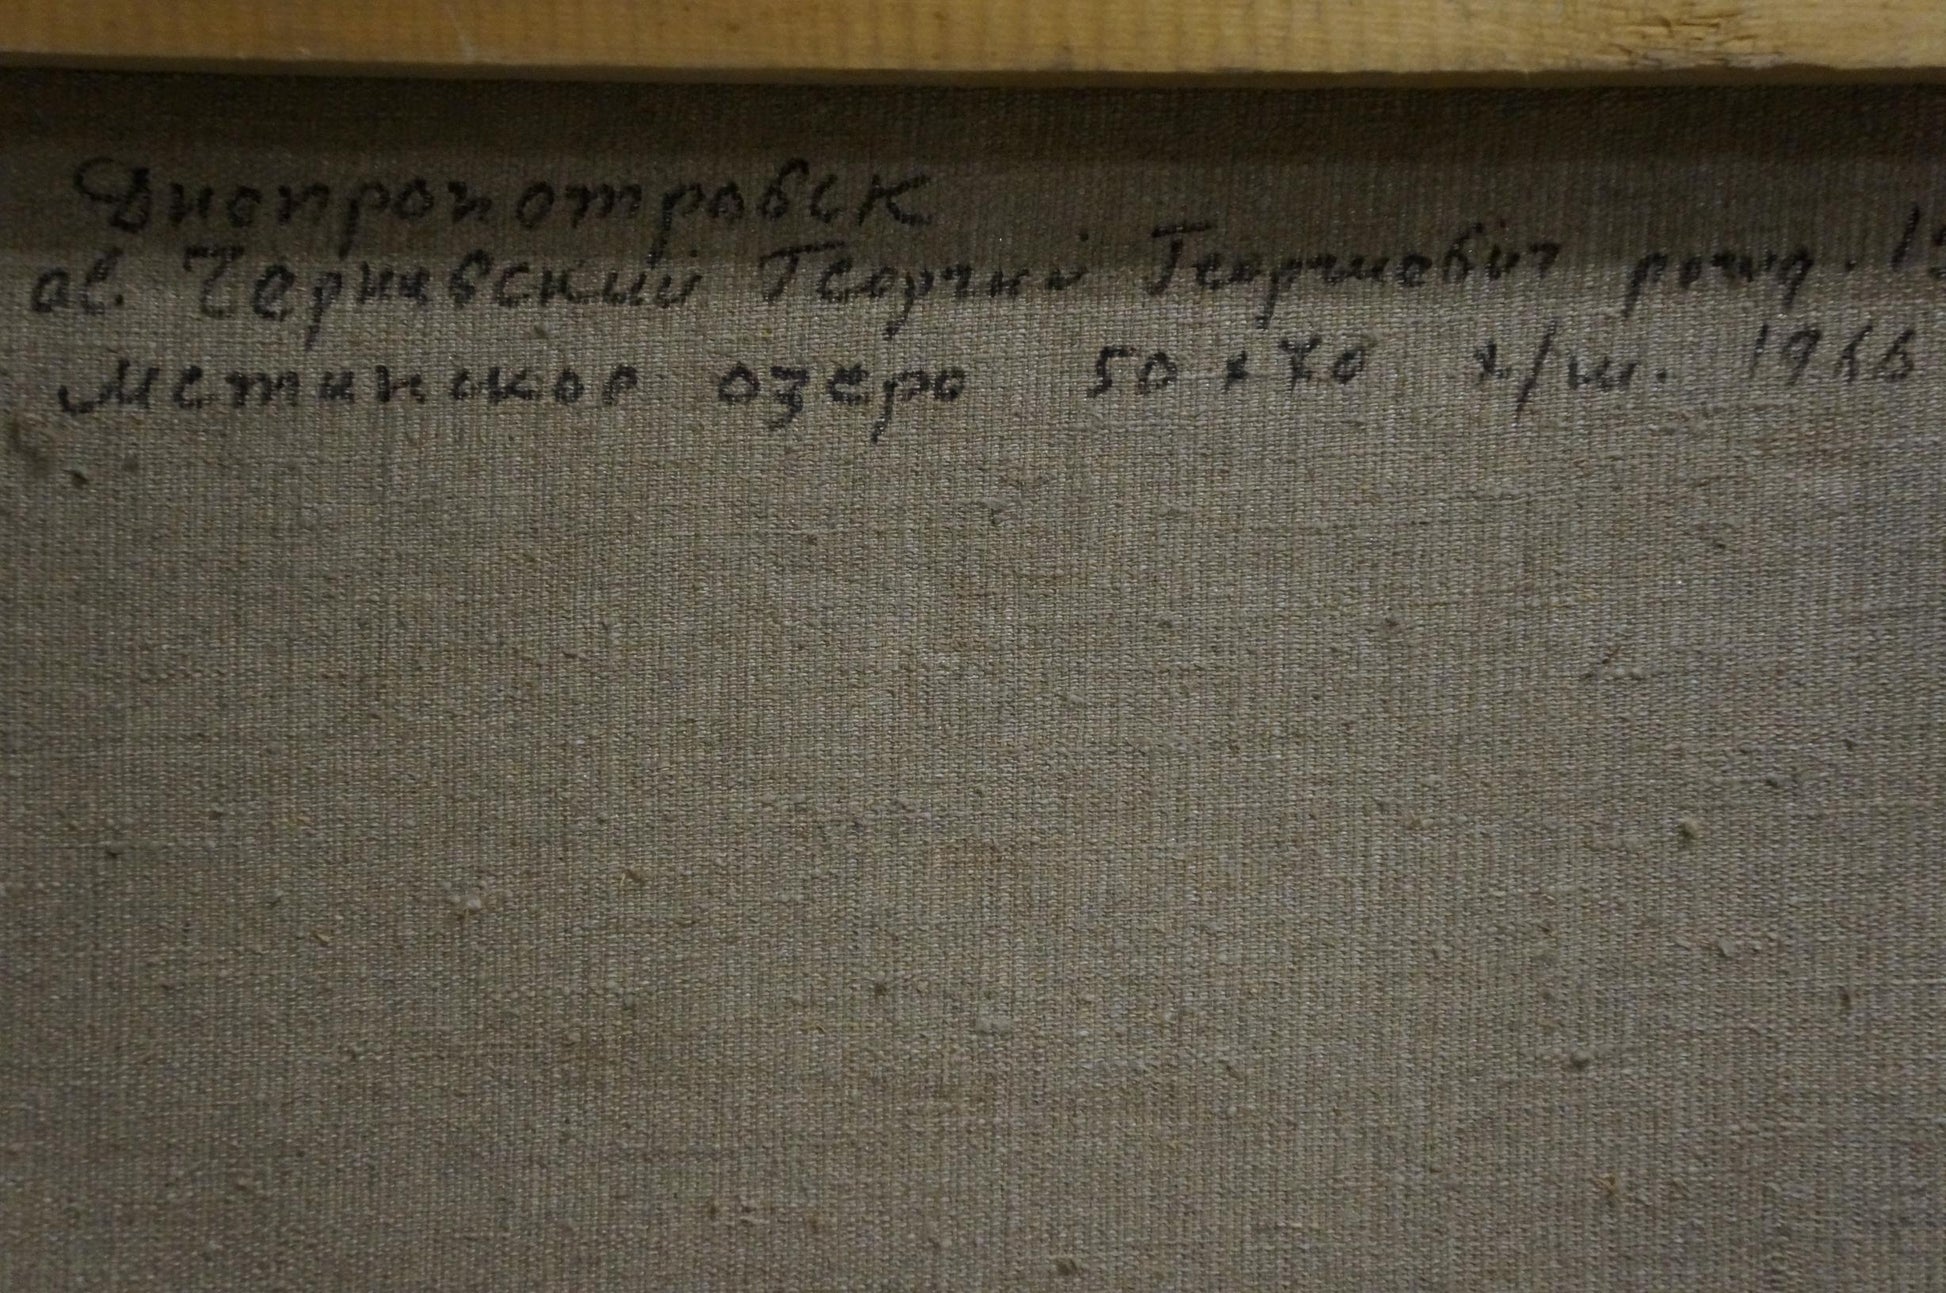 Днепропетровск
ав. Чернявский Георгий Георгиевич рожд. 19
озеро 50 x 70 х/м. 1966